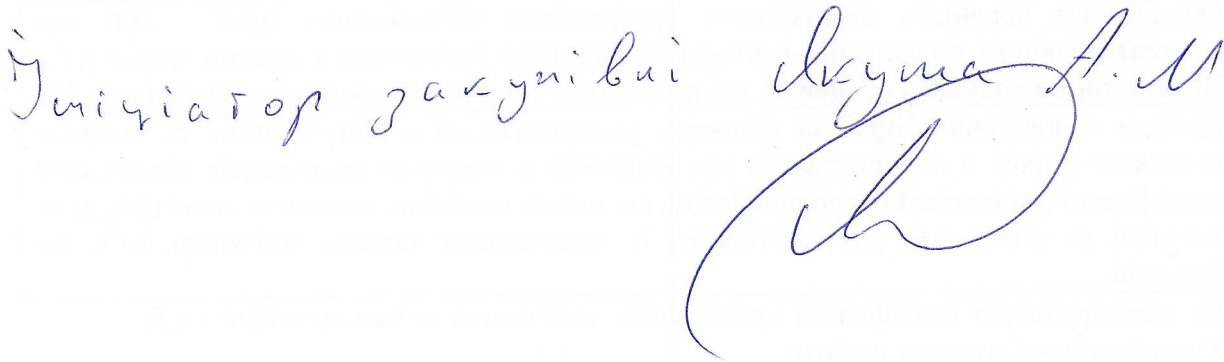 Ініціатор закупівлі Якуша А. М